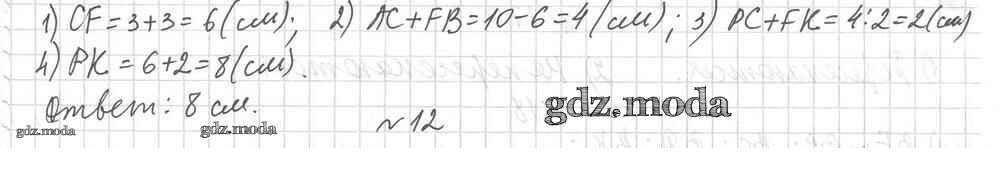 1) CF = 3+3 = 6 (см); 2) AC+FB = 10-6 = 4 (см); 3) PC+FK = 4:2 = 2 (см)
4) PK = 6+2 = 8 (см).
Ответ: 8 см.
gdz.moda gdz.moda gdz.moda
№12